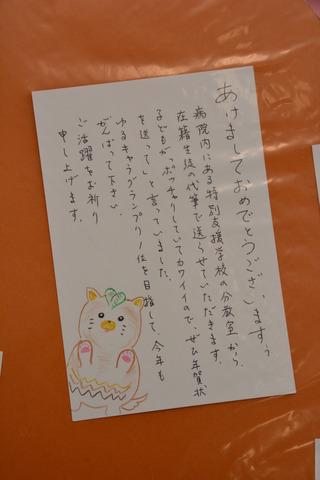 あけましておめでとうございます。
病院内にある特別支援学校の分教室から、
在籍生徒の代筆で送らせていただきます。
子どもが「ポッチャリしていてカワイイので、ぜひ年賀状
を送って」と言っていました。
ゆるキャラグランプリ1位を目指して、今年も
がんばって下さい。
ご活躍をお祈り
申し上げます。